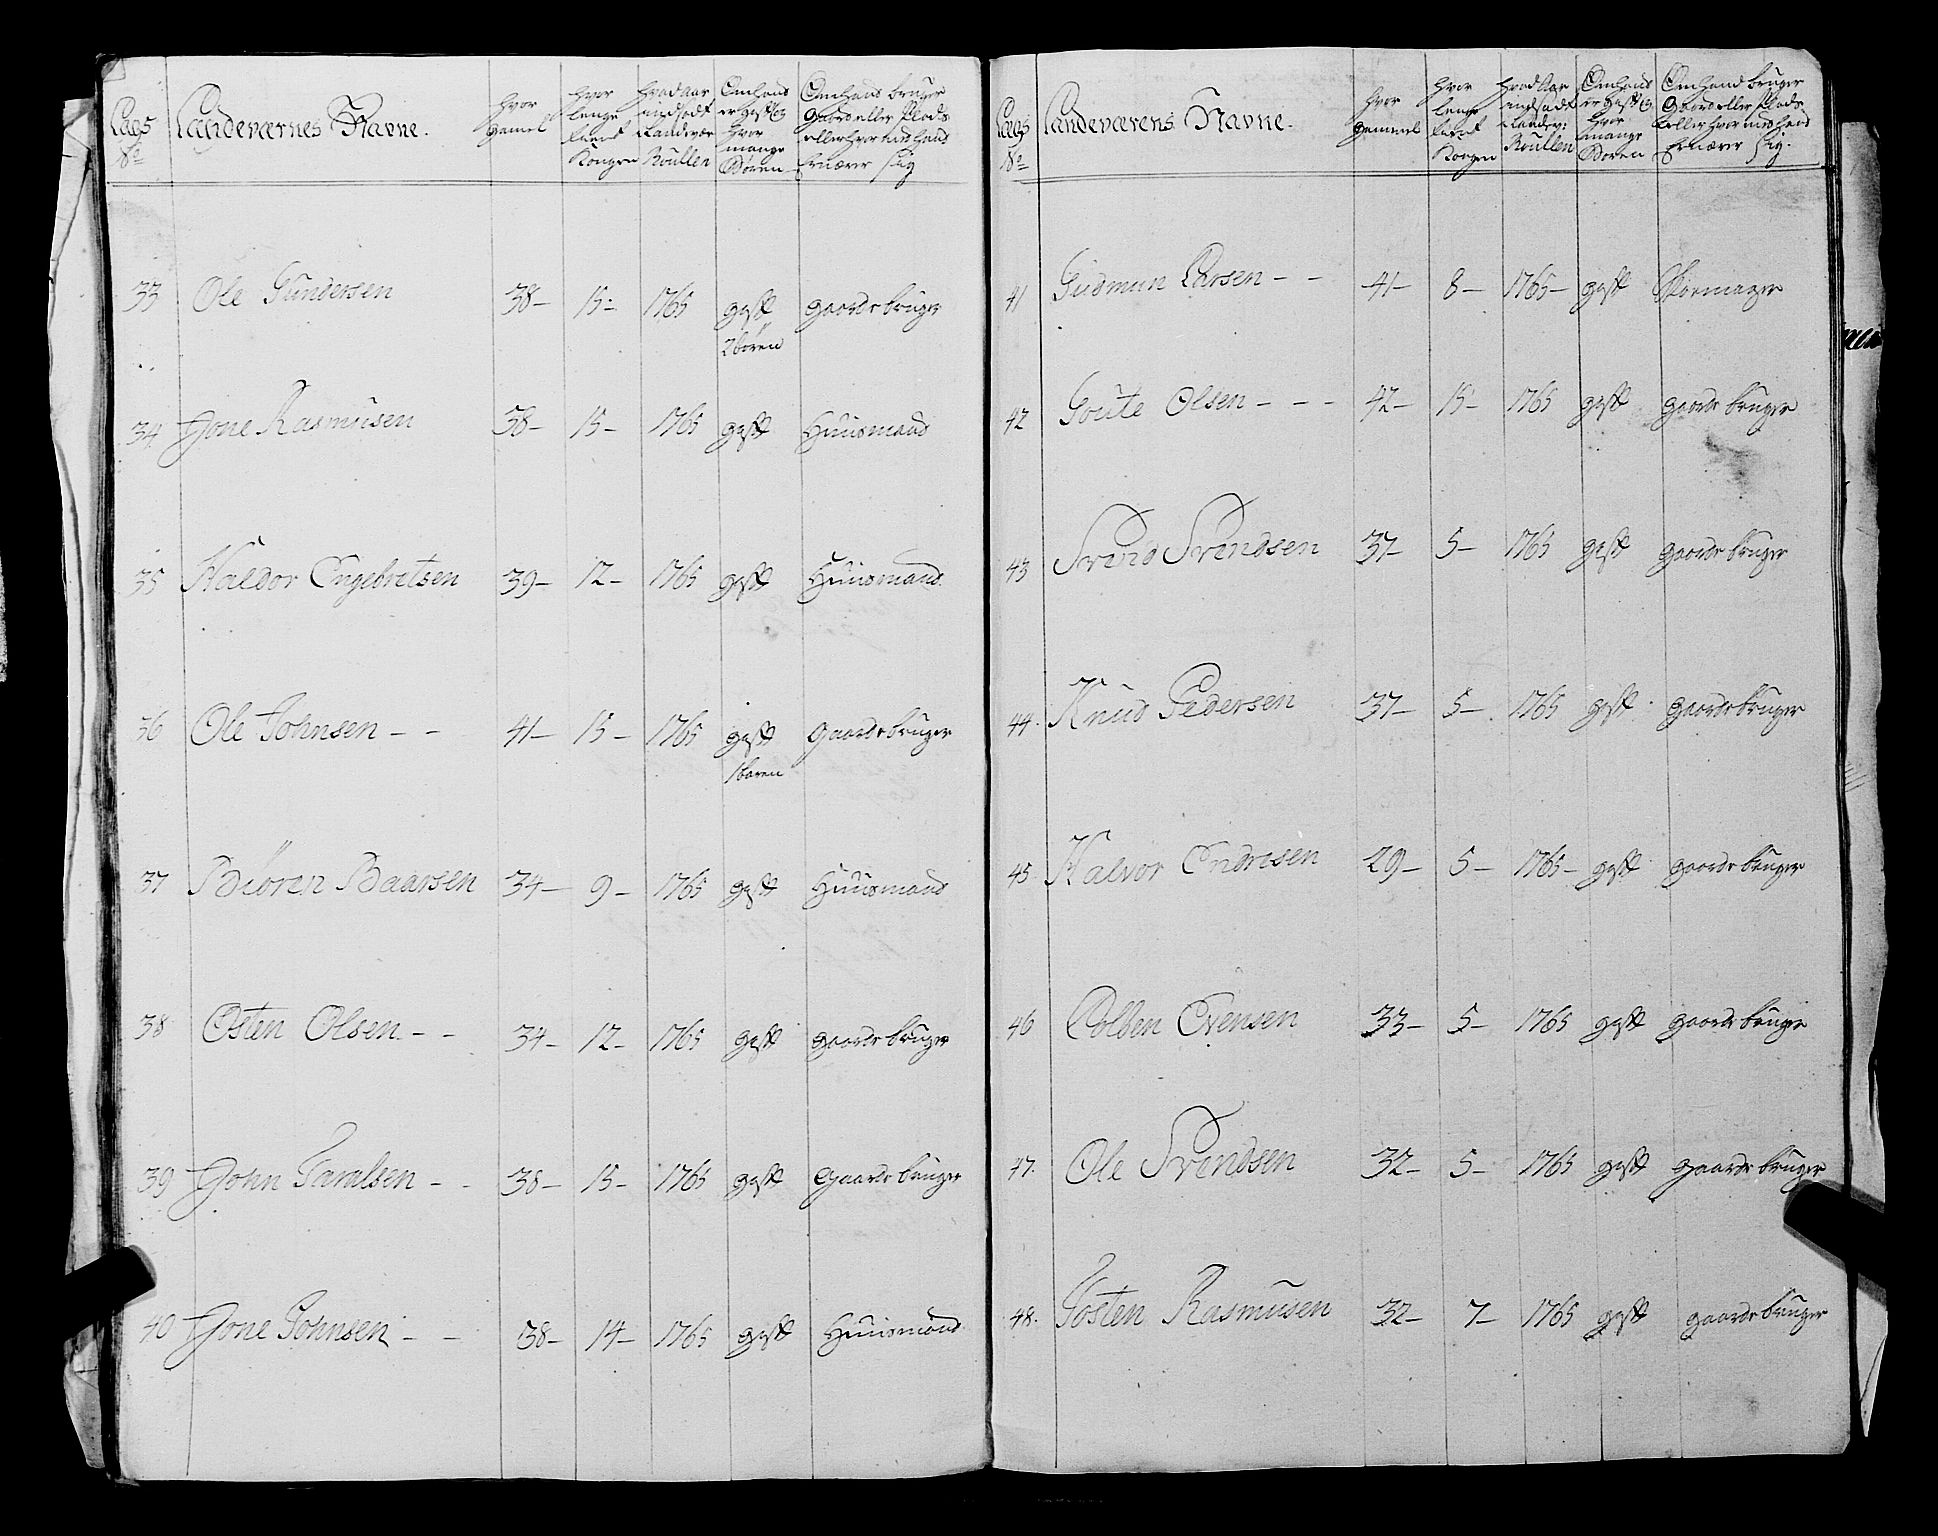 Laugs No
Landeværnes Navne.
hvor gamel
hvor lenge tient Kongen
hvad aar indsadt i Landevær Roullen
Om hand er gift og hvor mange Børen
Om hand bruger Gaard eller Plads eller hvor med hand Ernærer sig
33 Ole Gundersen 38 – 15 – 1765 gift 2 børen gaardebruger
34 Jone Rasmusen 38 – 15 – 1765 gift Huusmand
35 Haldor Engebretsen 39 – 12 – 1765 gift Huusmand
36 Ole Johnsen – – 41 – 15 – 1765 gift 1 baren gaardebruger
37 Biören Baarsen 34 – 9 – 1765 gift Huusmand
38 Osten Olsen – – 34 – 12 – 1765 gift gaardebruger
39 John Taralsen – – 38 – 15 – 1765 gift Gaardebruger
40 Jone Johnsen – – 38 – 14 – 1765 gift Huusmand
Laugs No
Landeværens Navne.
hvor gammel
hvor lenge tient Kongen
hvad aar indsadt i Landev: Roullen
Om hand er gift og hvor mange Børen
Om hand bruger Gaard eller Plads eller hvor med hand Ernærer sig.
41 Gudmun Larsen – – 41 – 8 – 1765 – gift Skomager
42 Goute Olsen – – – 42 – 15 – 1765 gift gaardebruger
43 Svend Svendsen 37 – 5 – 1765 gift gaardebruger
44. Knud Pedersen 37 – 5 – 1765 gift gaardebruger
45 Halvor Endresen 29 – 5 – 1765 – gift gaardebruger
46 Colben Evensen 33 – 5 – 1765 gift gaardebruger
47. Ole Svendsen 32 – 5 – 1765 gift gaardebruger
48. Tosten Rasmusen 32 – 7 – 1765 gift gaardebruger